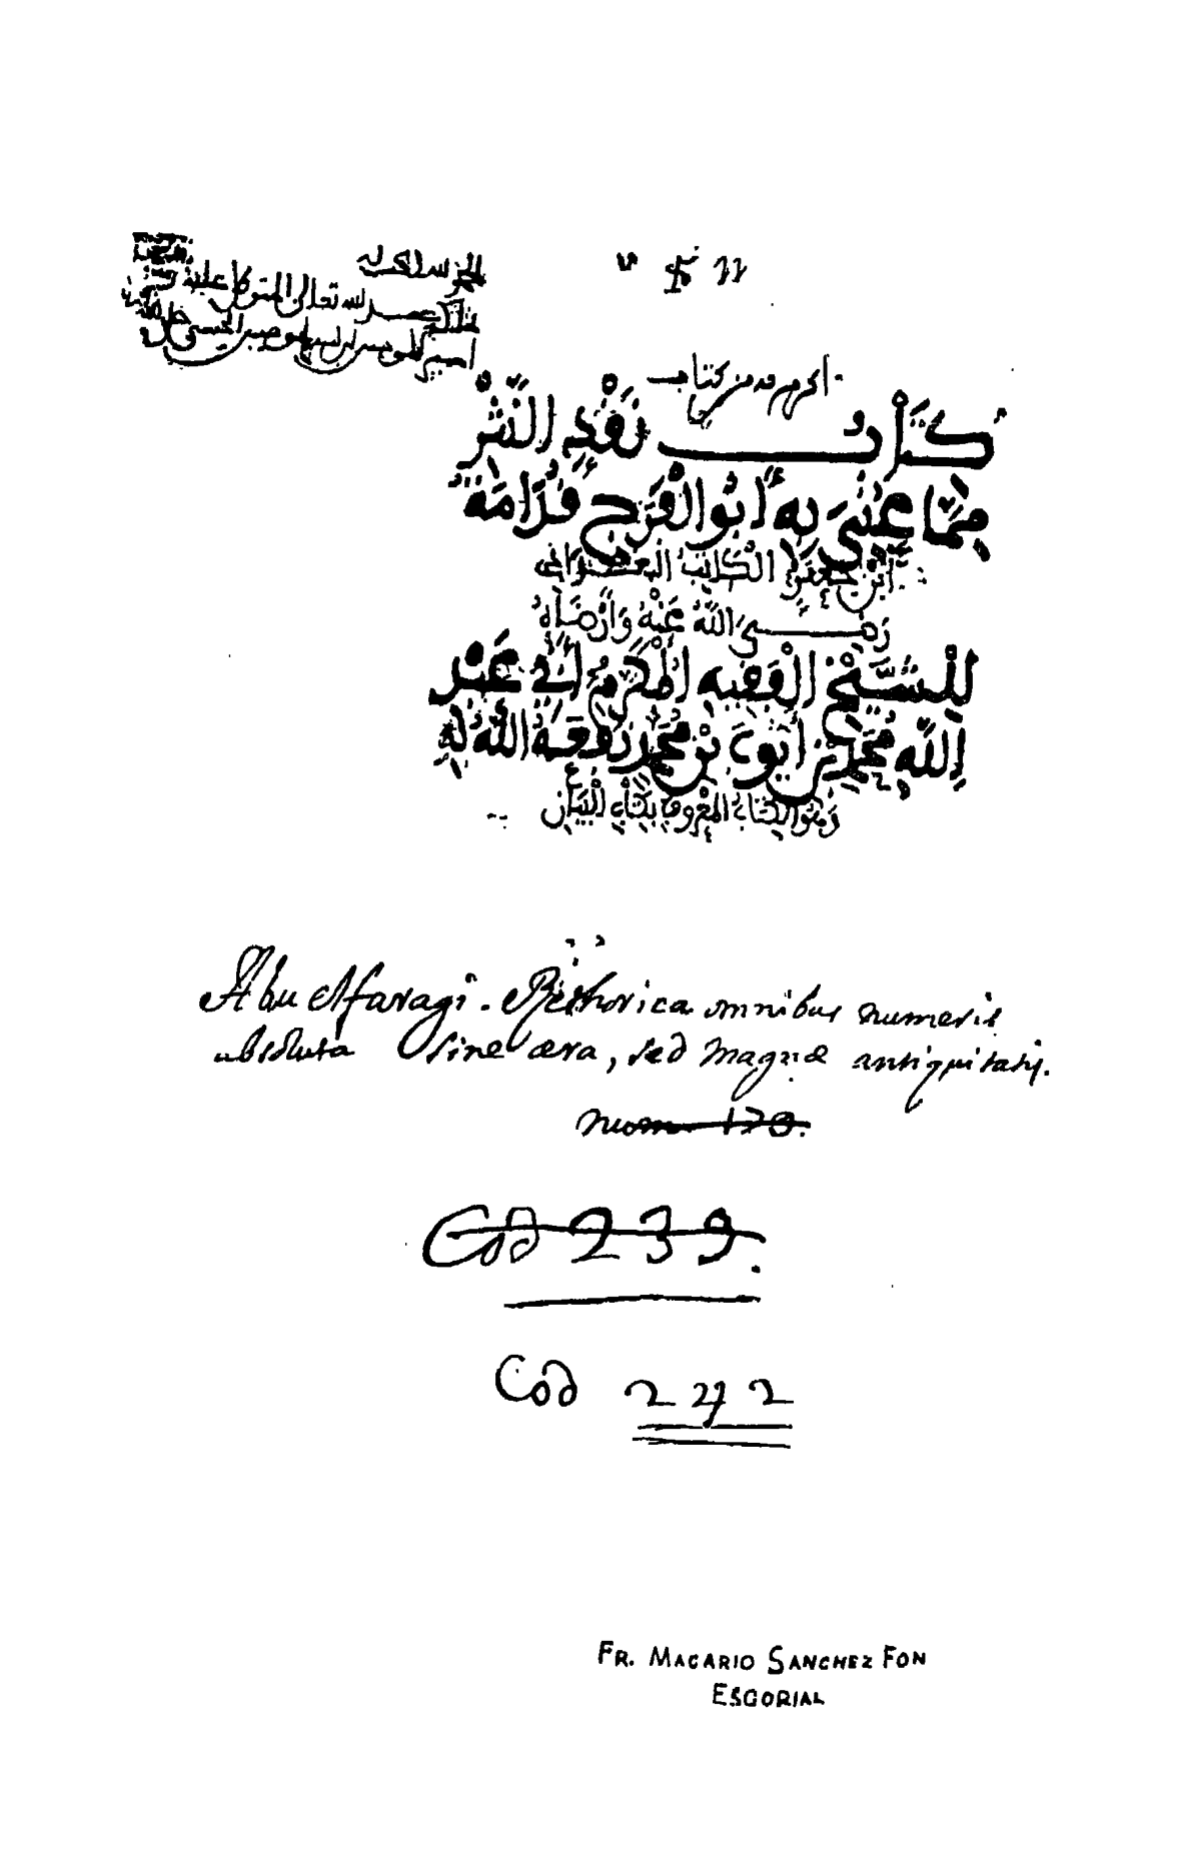 الحمد لله
عبد الله تعالى المتوكل عليه
أمير المومنين
الحسني
من كتاب
كِتَابُ نَقْدِ النَّثْرِ
مِمَّا عُنِيَ بِهِ أَبُو الْفَرَجِ قُدَامَةُ
ابْنُ جَعْفَرٍ الْكَاتِبُ الْبَغْدَاذِيُّ
رَضِيَ اللَّهُ عَنْهُ وَأَرْضَاهُ
لِلشَّيْخِ الْفَقِيهِ الْمُكَرَّمِ أَبِي عَبْدِ
اللَّهِ مُحَمَّدِ بْنِ أَيُّوبَ بْنِ مُحَمَّدٍ وَفَّقَهُ اللَّهُ لَهُ
وَهُوَ الْكِتَابُ الْمَعْرُوفُ بِكِتَابِ الْبَيَانِ
Abu Alfaragi. Rethorica omnibus numeris
absoluta sine æra, sed magnæ antiquitatis.
num 170.
Cod 239.
Cod 242
FR. MACARIO SANCHEZ FON
ESCORIAL